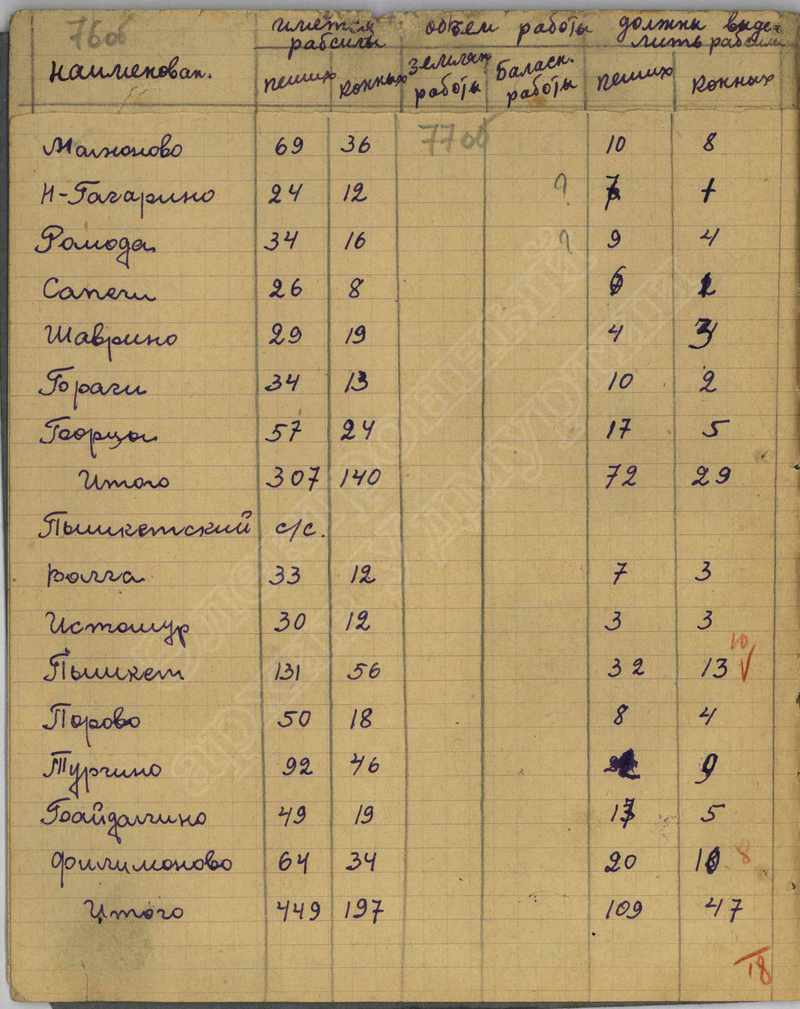 76об
имеется рабсилы объем работы должны выделить рабсилы
наименован. пеших конных земляны работы Баласн. работы пеших конных
77об
Малюново 69 36 10 8
Н-Гагарино 24 12 ? 7 1
Ромода 34 16 ? 9 4
Сапеги 26 8 6 2
Шаврино 29 19 4 3
Гораги 34 13 10 2
57 24 17 5
Итого 307 140 72 29
Пышкетский с/с.
Волга 33 12 7 3
Истошур 30 12 3 3
Пышкет 131 56 32 13 10
Порово 50 18 8 4
Тургино 92 46 9
Гвайдалгино 49 19 17 5
Филимоново 64 34 20 10 8
Итого 449 197 109 47
18